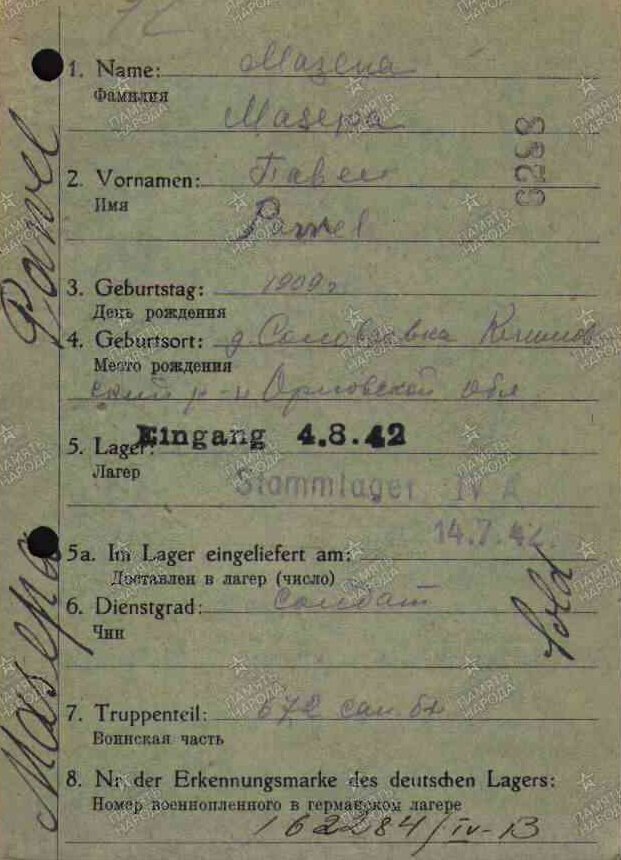 1. Name: Мазепа
Фамилия
Мазера
2. Vornamen: Павел
Имя
Pawel
6288
3. Geburtstag: 1909 г
День рождения
4. Geburtsort: д.
Место рождения
ский р-н Орловской обл
5. Lager: Eingang 4.8.42
Лагер
Stammlager IV A
14.7.42.
5a. Im Lager eingeliefert am:
Доставлен в лагер (число)
6. Dienstgrad: солдат
Чин
Sold
7. Truppenteil: 672 сап. бт
Воинская часть
8. Nr. der Erkennungsmarke des deutschen Lagers:
Номер военнопленного в германском лагере
162284/IV-B
Masepa Pawel
ПАМЯТЬ НАРОДА